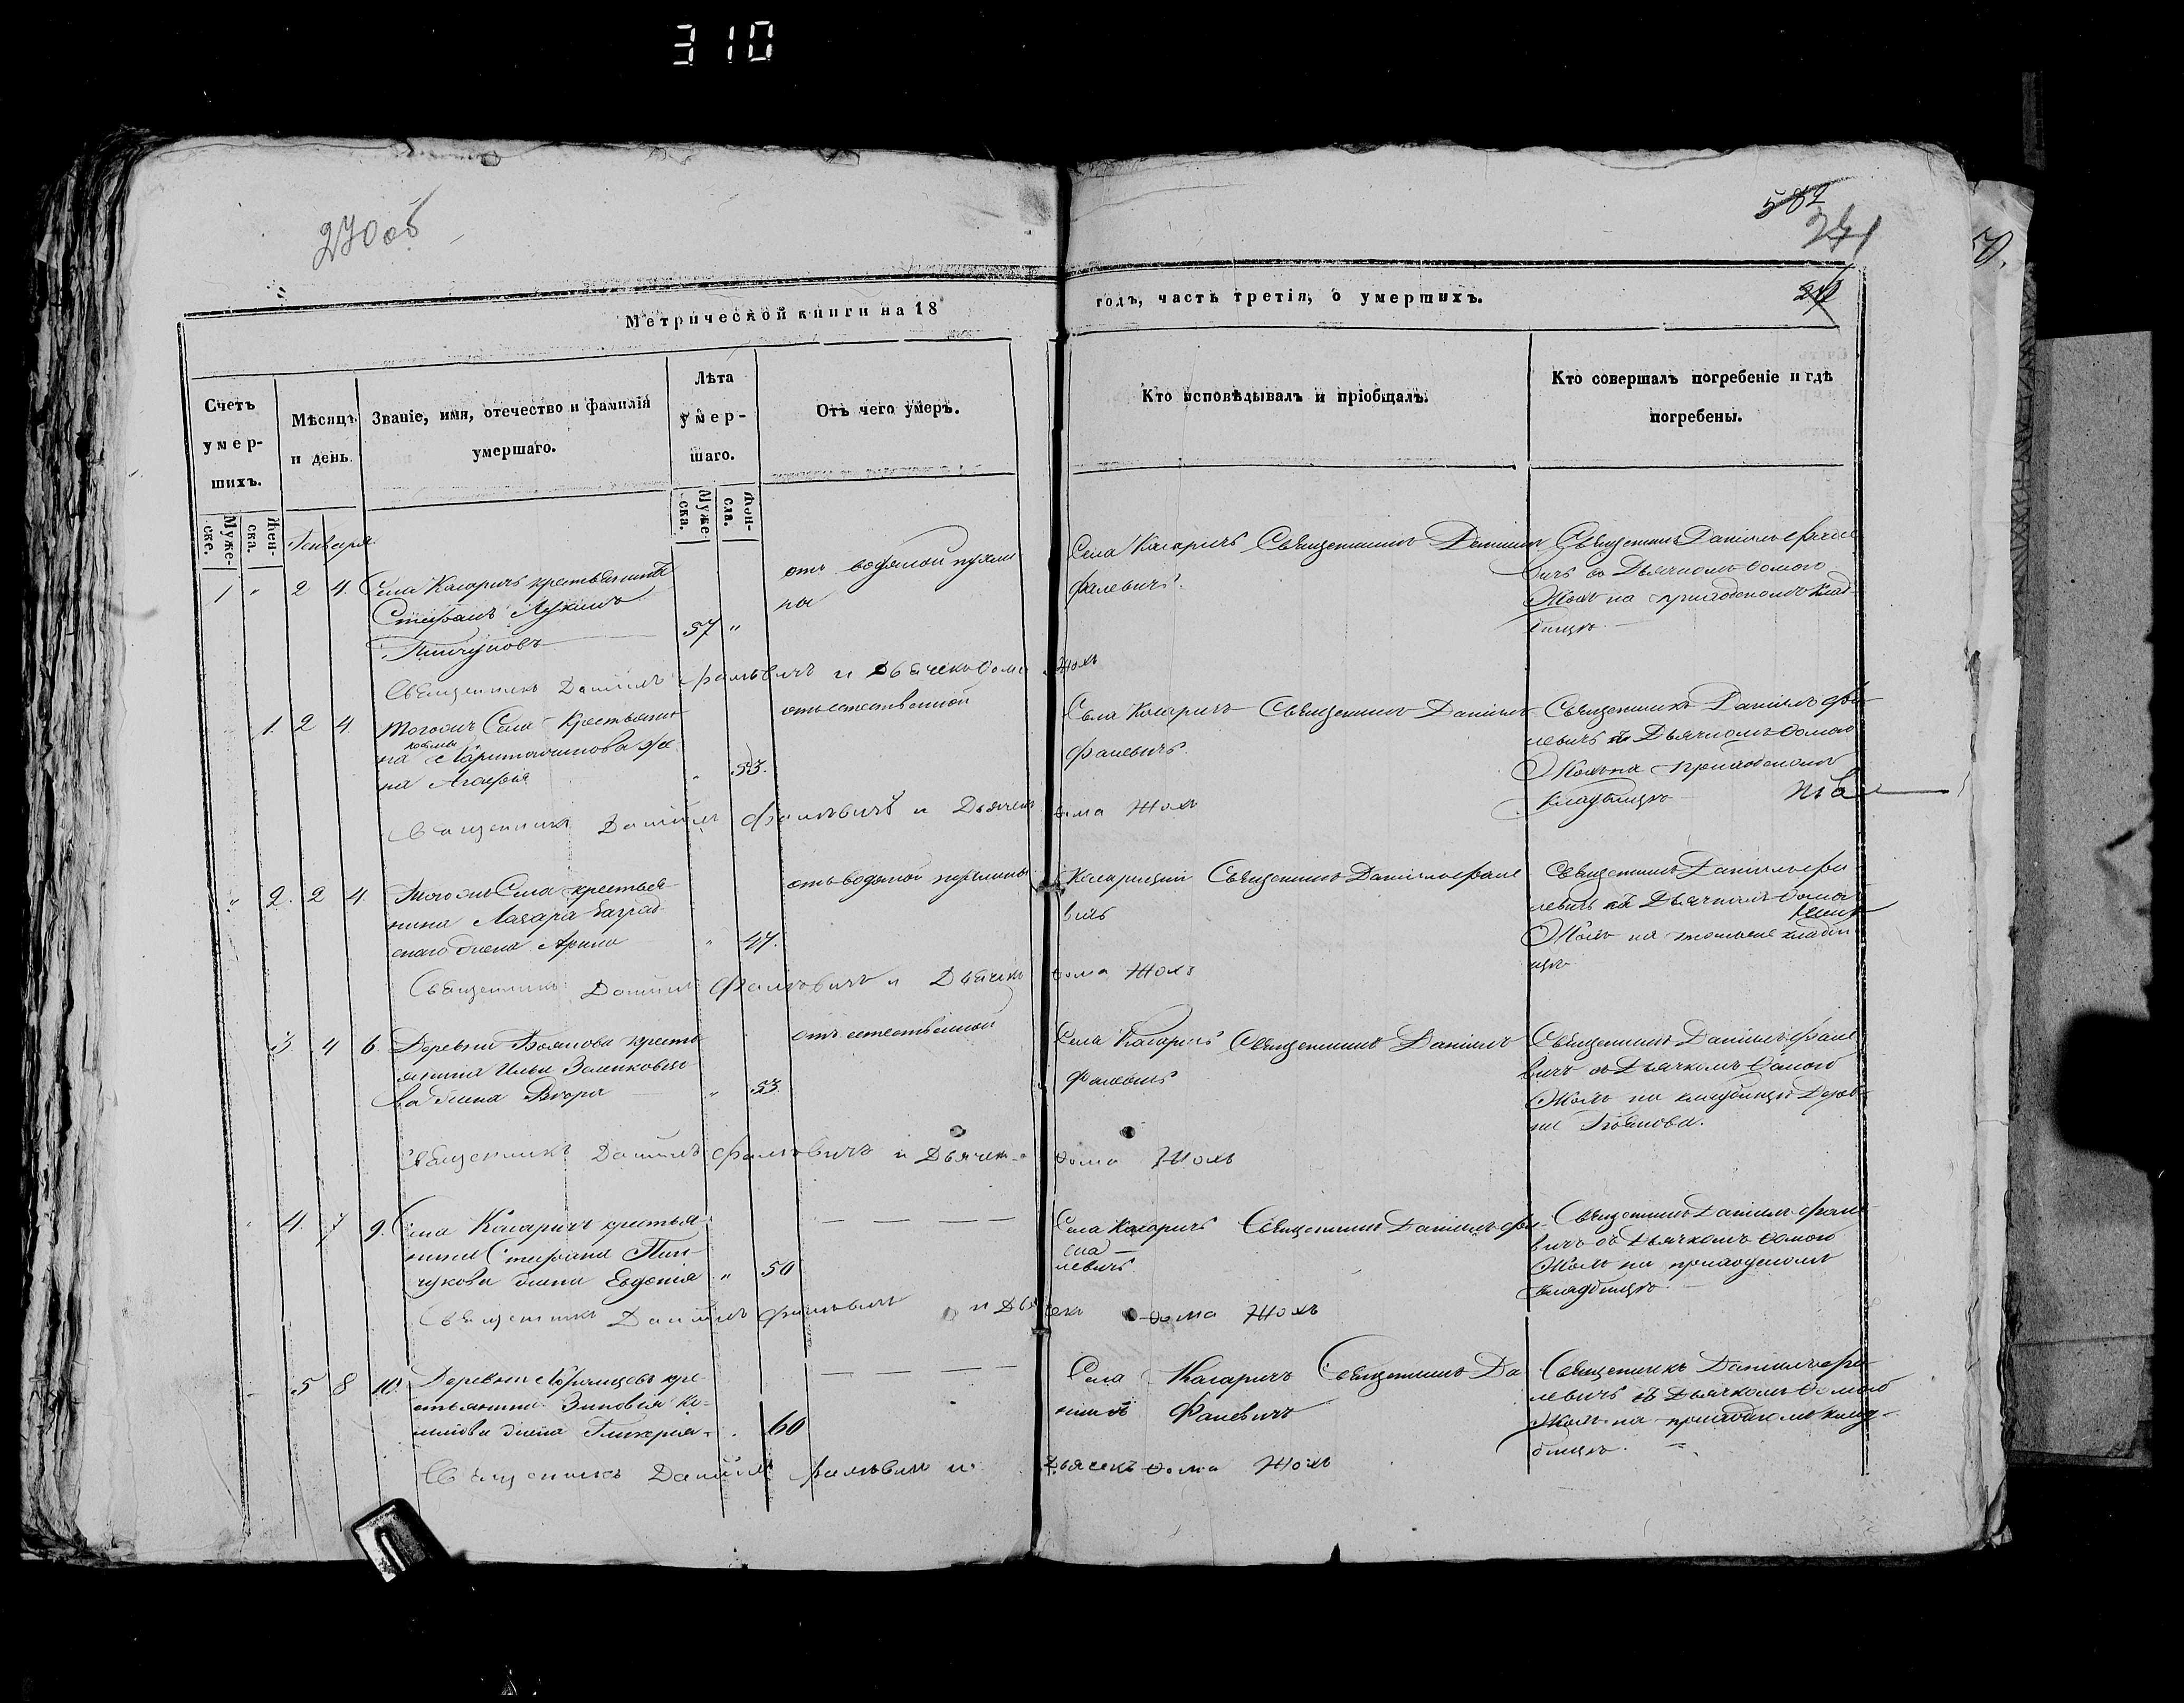 310
270 об
582
271
Метрической книги на 18
годъ, часть третія, о умершихъ.
Счетъ умер-шихъ.
Мѣсяцъ и день.
Званіе, имя, отечество и фамилія умершаго.
Лѣта умер-шаго.
Отъ чего умеръ.
Кто исповѣдывалъ и пріобщалъ.
Кто совершалъ погребеніе и гдѣ погребены.
Муже-ске.
Жен-ска.
Муже-ска.
Января
1 " 2 4. Села Кагаричъ крестьянинъ
Стефанъ Лукинъ
57 "
отъ водяной
Села Кагаричъ Священникъ Даніилъ
Фалевичъ.
Священникъ Даніилъ Фале
вичъ съ Дьячкомъ Ѳомою
Жолъ на приходскомъ клад
бищѣ.
Священникъ Даніилъ Фалевичъ и Дьячекъ Ѳома Жолъ
1. 2 4. Тогожъ Села крестьяни
на жена
на Агафія
" 53.
отъ естественной
Села Кагаричъ Священникъ Даніилъ
Фалевичъ
Священникъ Даніилъ Фа-
левичъ съ Дьячкомъ Ѳомою
Жолъ на приходскомъ
кладбищѣ
Священникъ Даніилъ Фалевичъ и Дьячекъ Ѳома Жолъ
" 2. 2 4. Тогожъ Села крестья-
нина Лазара
жена Арина
" 47.
отъ водяной
Священникъ Даніилъ Фале
вичъ
Священникъ Даніилъ Фа-
левичъ съ Дьячкомъ Ѳомою
Жолъ на кладби
щѣ
Священникъ Даніилъ Фалевичъ и Дьячекъ Ѳома Жолъ
3. 4 6. Деревни Боянова кресть
янина Ильи
ва жена
" 53.
отъ естественной
Села Кагаричъ Священникъ Даніилъ
Фалевичъ
Священникъ Даніилъ Фале
вичъ съ Дьячкомъ Ѳомою
Жолъ на кладбищѣ Дерев-
ни Боянова.
Священникъ Даніилъ Фалевичъ и Дьячекъ Ѳома Жолъ
4. 7 9. Села Кагаричъ крестья-
нина Стефана Пин-
чукова жена Евдокія " 50
Села Кагаричъ Священникъ Даніилъ Фа-
левичъ
Священникъ Даніилъ Фале
вичъ съ Дьячкомъ Ѳомою
Жолъ на приходскомъ
кладбищѣ
Священникъ Даніилъ Фалевичъ и Дьячекъ Ѳома Жолъ
5 8 10. Деревни кре-
стьянина Зиновія
жена Гликерія 60
Села Кагаричъ Священникъ Да
ніилъ Фалевичъ
Священникъ Даніилъ Фа-
левичъ съ Дьячкомъ Ѳомою
Жолъ на приходскомъ клад-
бищѣ.
Священникъ Даніилъ Фалевичъ и Дьячекъ Ѳома Жолъ